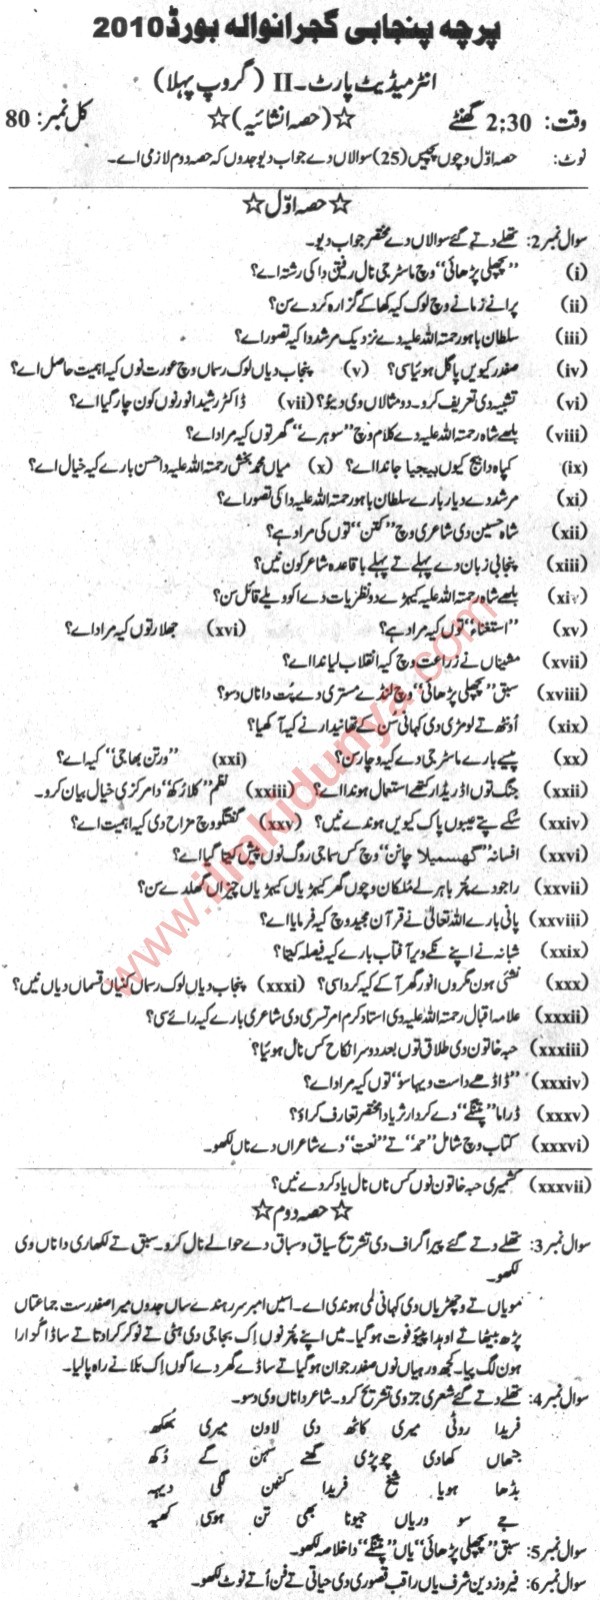 پرچہ پنجابی گجرانوالہ بورڈ 2010
انٹرمیڈیٹ پارٹ۔II (گروپ پہلا)
وقت: 2:30 گھنٹے ☆(حصہ انشائیہ)☆ کل نمبر: 80
نوٹ: حصہ اوّل وچوں پچیس (25) سوالاں دے جواب دیو جدوں کہ حصہ دوم لازمی اے۔
☆حصہ اوّل☆
سوال نمبر2: تھلے دتے گئے سوالاں دے مختصر جواب دیو۔
(i) "پچھلی پڑھائی" وچ ماسٹر جی نال رفیق دا کی رشتہ اے؟
(ii) پرانے زمانے وچ لوک کیہ کھا کے گزارہ کردے سن؟
(iii) سلطان باہو رحمتہ اللہ علیہ دے نزدیک مرشد دا کیہ تصور اے؟
(iv) صفدر کیویں پاگل ہویا سی؟ (v) پنجاب دیاں لوک رسماں وچ عورت نوں کیہ اہمیت حاصل اے؟
(vi) تشبیہ دی تعریف کرو۔ دو مثالاں وی دیؤ؟ (vii) ڈاکٹر رشید انور نوں کون چار گیا اے؟
(viii) بلھے شاہ رحمتہ اللہ علیہ دے کلام وچ "سوہرے" گھر توں کیہ مراد اے؟
(ix) کپاہ دا بیج کیوں بیجیا جاندا اے؟ (x) میاں محمد بخش رحمتہ اللہ علیہ دا حسن بارے کیہ خیال اے؟
(xi) مرشد دے دیدار بارے سلطان باہو رحمتہ اللہ علیہ دا کی تصور اے؟
(xii) شاہ حسین دی شاعری وچ "کتن" توں کی مراد ہے؟
(xiii) پنجابی زبان دے پہلے تے پہلے باقاعدہ شاعر کون نیں؟
(xiv) بلھے شاہ رحمتہ اللہ علیہ کیہڑے دو نظریات دے اکو ویلے قائل سن؟
(xv) "استغناء" توں کیہ مراد ہے؟ (xvi) جھلار توں کیہ مراد اے؟
(xvii) مشیناں نے زراعت وچ کیہ انقلاب لیاندا اے؟
(xviii) سبق "پچھلی پڑھائی" وچ لنڈے مستری دے پُت دا ناں دسو؟
(xix) اُونٹھ تے لومڑی دی کہانی سن کے تھانیدار نے کیہ آکھیا؟
(xx) پیسے بارے ماسٹر جی دے کیہ وچار سن؟ (xxi) "ورتن بھاجی" کیہ اے؟
(xxii) جنگ توں اڈ ریڈار کتھے استعمال ہوندا اے؟ (xxiii) نظم "کلا رُکھ" دا مرکزی خیال بیان کرو۔
(xxiv) سُکے پتے عیبوں پاک کیویں ہوندے نیں؟ (xxv) گفتگو وچ مزاح دی کیہ اہمیت اے؟
(xxvi) افسانہ "گھسمیلا چانن" وچ کس سماجی روگ نوں پیش کیتا گیا اے؟
(xxvii) راجو دے پتر باہر لے مُلکاں وچوں گھر کیہڑیاں کیہڑیاں چیزاں گھلدے سن؟
(xxviii) پانی بارے اللہ تعالیٰ نے قرآن مجید وچ کیہ فرمایا اے؟
(xxix) شبانہ نے اپنے نکے ویر آفتاب بارے کیہ فیصلہ کیتا؟
(xxx) نشئی ہون مگروں انور گھر آ کے کیہ کردا سی؟ (xxxi) پنجاب دیاں لوک رسماں کنیاں قسماں دیاں نیں؟
(xxxii) علامہ اقبال رحمتہ اللہ علیہ دی استاد کرم امرتسری دی شاعری بارے کیہ رائے سی؟
(xxxiii) حبہ خاتون دی طلاق توں بعد دوسرا نکاح کس نال ہویا؟
(xxxiv) "ڈاڈھے دا ست ویہا سو" توں کیہ مراد اے؟
(xxxv) ڈراما "پتنگے" دے کردار ثریا دا مختصر تعارف کراؤ؟
(xxxvi) کتاب وچ شامل "حمد" تے "نعت" دے شاعراں دے ناں لکھو۔
(xxxvii) کشمیری حبہ خاتون نوں کس ناں نال یاد کردے نیں؟
☆حصہ دوم☆
سوال نمبر3: تھلے دتے گئے پیراگراف دی تشریح سیاق و سباق دے حوالے نال کرو۔ سبق تے لکھاری دا ناں وی
لکھو۔
مویاں تے وچھڑیاں دی کہانی لمی ہوندی اے۔ اسیں امبرسر رہندے ساں جدوں میرا صفدر ست جماعتاں
پڑھ بیٹھا تے اوہدا پیؤ فوت ہو گیا۔ میں اپنے پتر نوں اِک بجاجی دی ہٹی تے نوکر کرا دتا تے ساڈا گزارا
ہون لگ پیا۔ کجھ ورہیاں نوں صفدر جوان ہو گیا تے ساڈے گھر دے اگوں اِک بَلا نے راہ پا لیا۔
سوال نمبر4: تھلے دتے گئے شعری جزو دی تشریح کرو۔ شاعر دا ناں وی دسو۔
فریدا روٹی میری کاٹھ دی لاون میری بُھکھ
جنھاں کھادی چوپڑی گھنے سہن گے دُکھ
بڈھا ہویا شیخ فریدا کنبن لگی دیہہ
جے سو وریاں جیونا بھی تن ہوسی کھیہ
سوال نمبر5: سبق "پچھلی پڑھائی" یاں "پتنگے" دا خلاصہ لکھو۔
سوال نمبر6: فیروز دین شرف یاں راقب قصوری دی حیاتی تے فن اُتے نوٹ لکھو۔
www.ilmkidunya.com